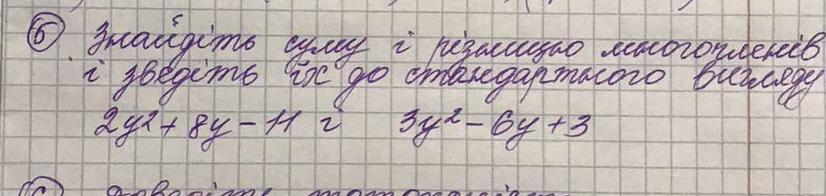 5 Знайдіть суму і різницю многочленів
і зведіть їх до стандартного вигляду
2y²+8y-11 і 3y²-6y+3